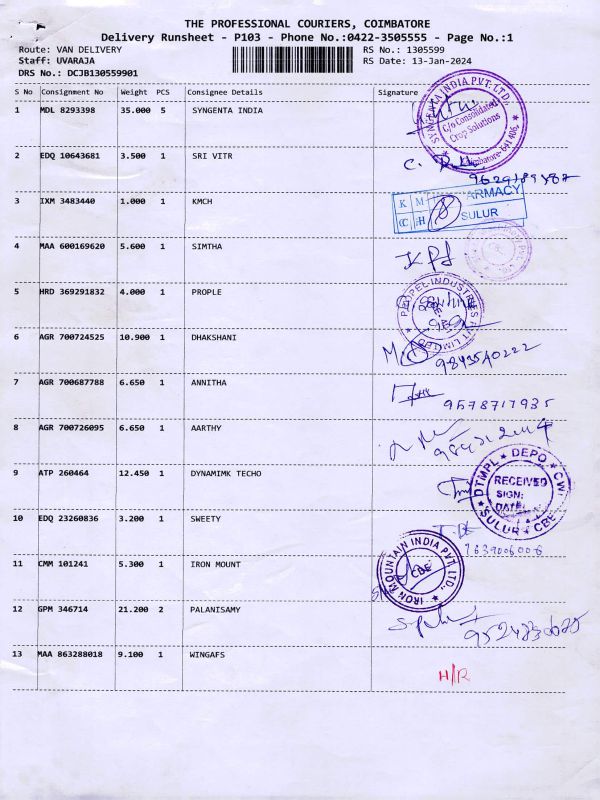 THE PROFESSIONAL COURIERS, COIMBATORE
Delivery Runsheet - P103 - Phone No.:0422-3505555 - Page No.:1
Route: VAN DELIVERY RS No.: 1305599
Staff: UVARAJA RS Date: 13-Jan-2024
DRS No.: DCJB130559901
S No Consignment No Weight PCS Consignee Details Signature
1 MDL 8293398 35.000 5 SYNGENTA INDIA
SYNGENTA INDIA PVT. LTD.,
C/o Consolidated
Crop Solutions
Coimbatore-641 406.
2 EDQ 10643681 3.500 1 SRI VITR
3 IXM 3483440 1.000 1 KMCH
K M ARMACY
C H SULUR
4 MAA 600169620 5.600 1 SIMTHA
5 HRD 369291832 4.000 1 PROPLE
6 AGR 700724525 10.900 1 DHAKSHANI
9843540222
7 AGR 700687788 6.650 1 ANNITHA
9578717935
8 AGR 700726095 6.650 1 AARTHY
9 ATP 260464 12.450 1 DYNAMIMK TECHO
DTMPL * DEPO * CWI
RECEIVED
SIGN:
DATE:
SULUR * CBE
10 EDQ 23260836 3.200 1 SWEETY
7639006006
11 CMM 101241 5.300 1 IRON MOUNT
IRON MOUNTAIN INDIA PVT. LTD.,
CBE
12 GPM 346714 21.200 2 PALANISAMY
13 MAA 863288018 9.100 1 WINGAFS
H/R